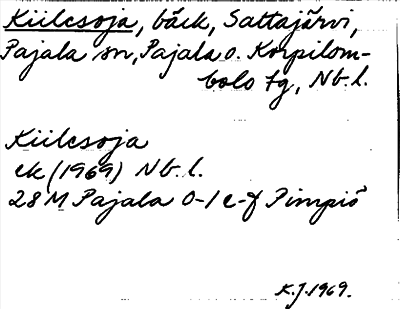 Kiilcsoja, bäck, Sattajärvi,
Pajala sn, Pajala o. Korpilom-
bolo tg, Nb. l.
Kiilcsoja
ek (1969) Nb. l.
28 M Pajala 0-1 e-f Pimpiö
K.J. 1969.